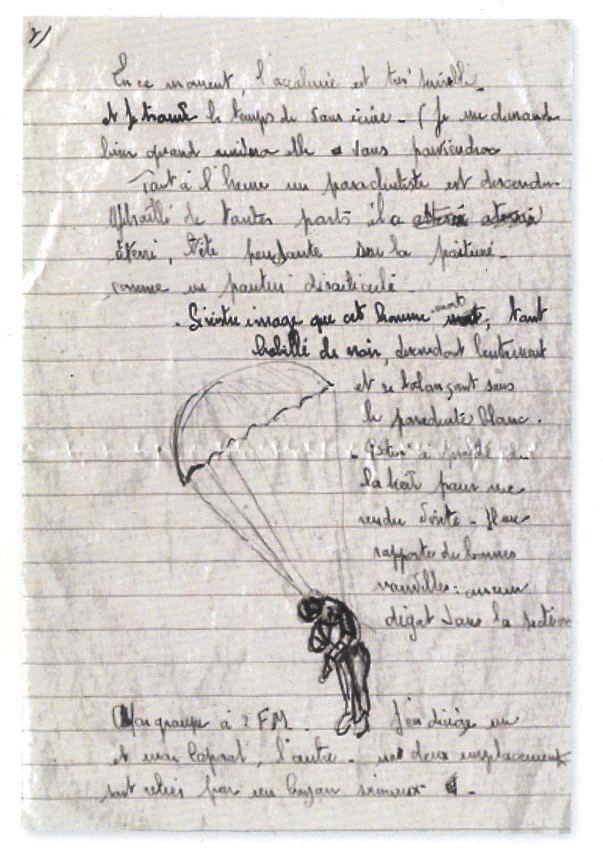 2)
En ce moment, l'accalmie est très sensible
et je trouve le temps de vous écrire - (Je me demande
bien quand même elle vous parviendra
Tout à l'heure un parachutiste est descendu
Mitraillé de toutes parts il a
atterri, tête pendante sur la poitrine -
comme un pantin désarticulé -
- Sinistre image que cet homme mort, tout
habillé de noir, descendant lentement
et se balançant sous
le parachute blanc.
- à profité de
la pour me
rendre visite - Il me
rapporte de bonnes
nouvelles : aucun
dégat dans la section
Mon groupe à 2 FM. J'en dirige un
et mon Caporal, l'autre - nos deux emplacements
sont reliés par un boyau sinueux -